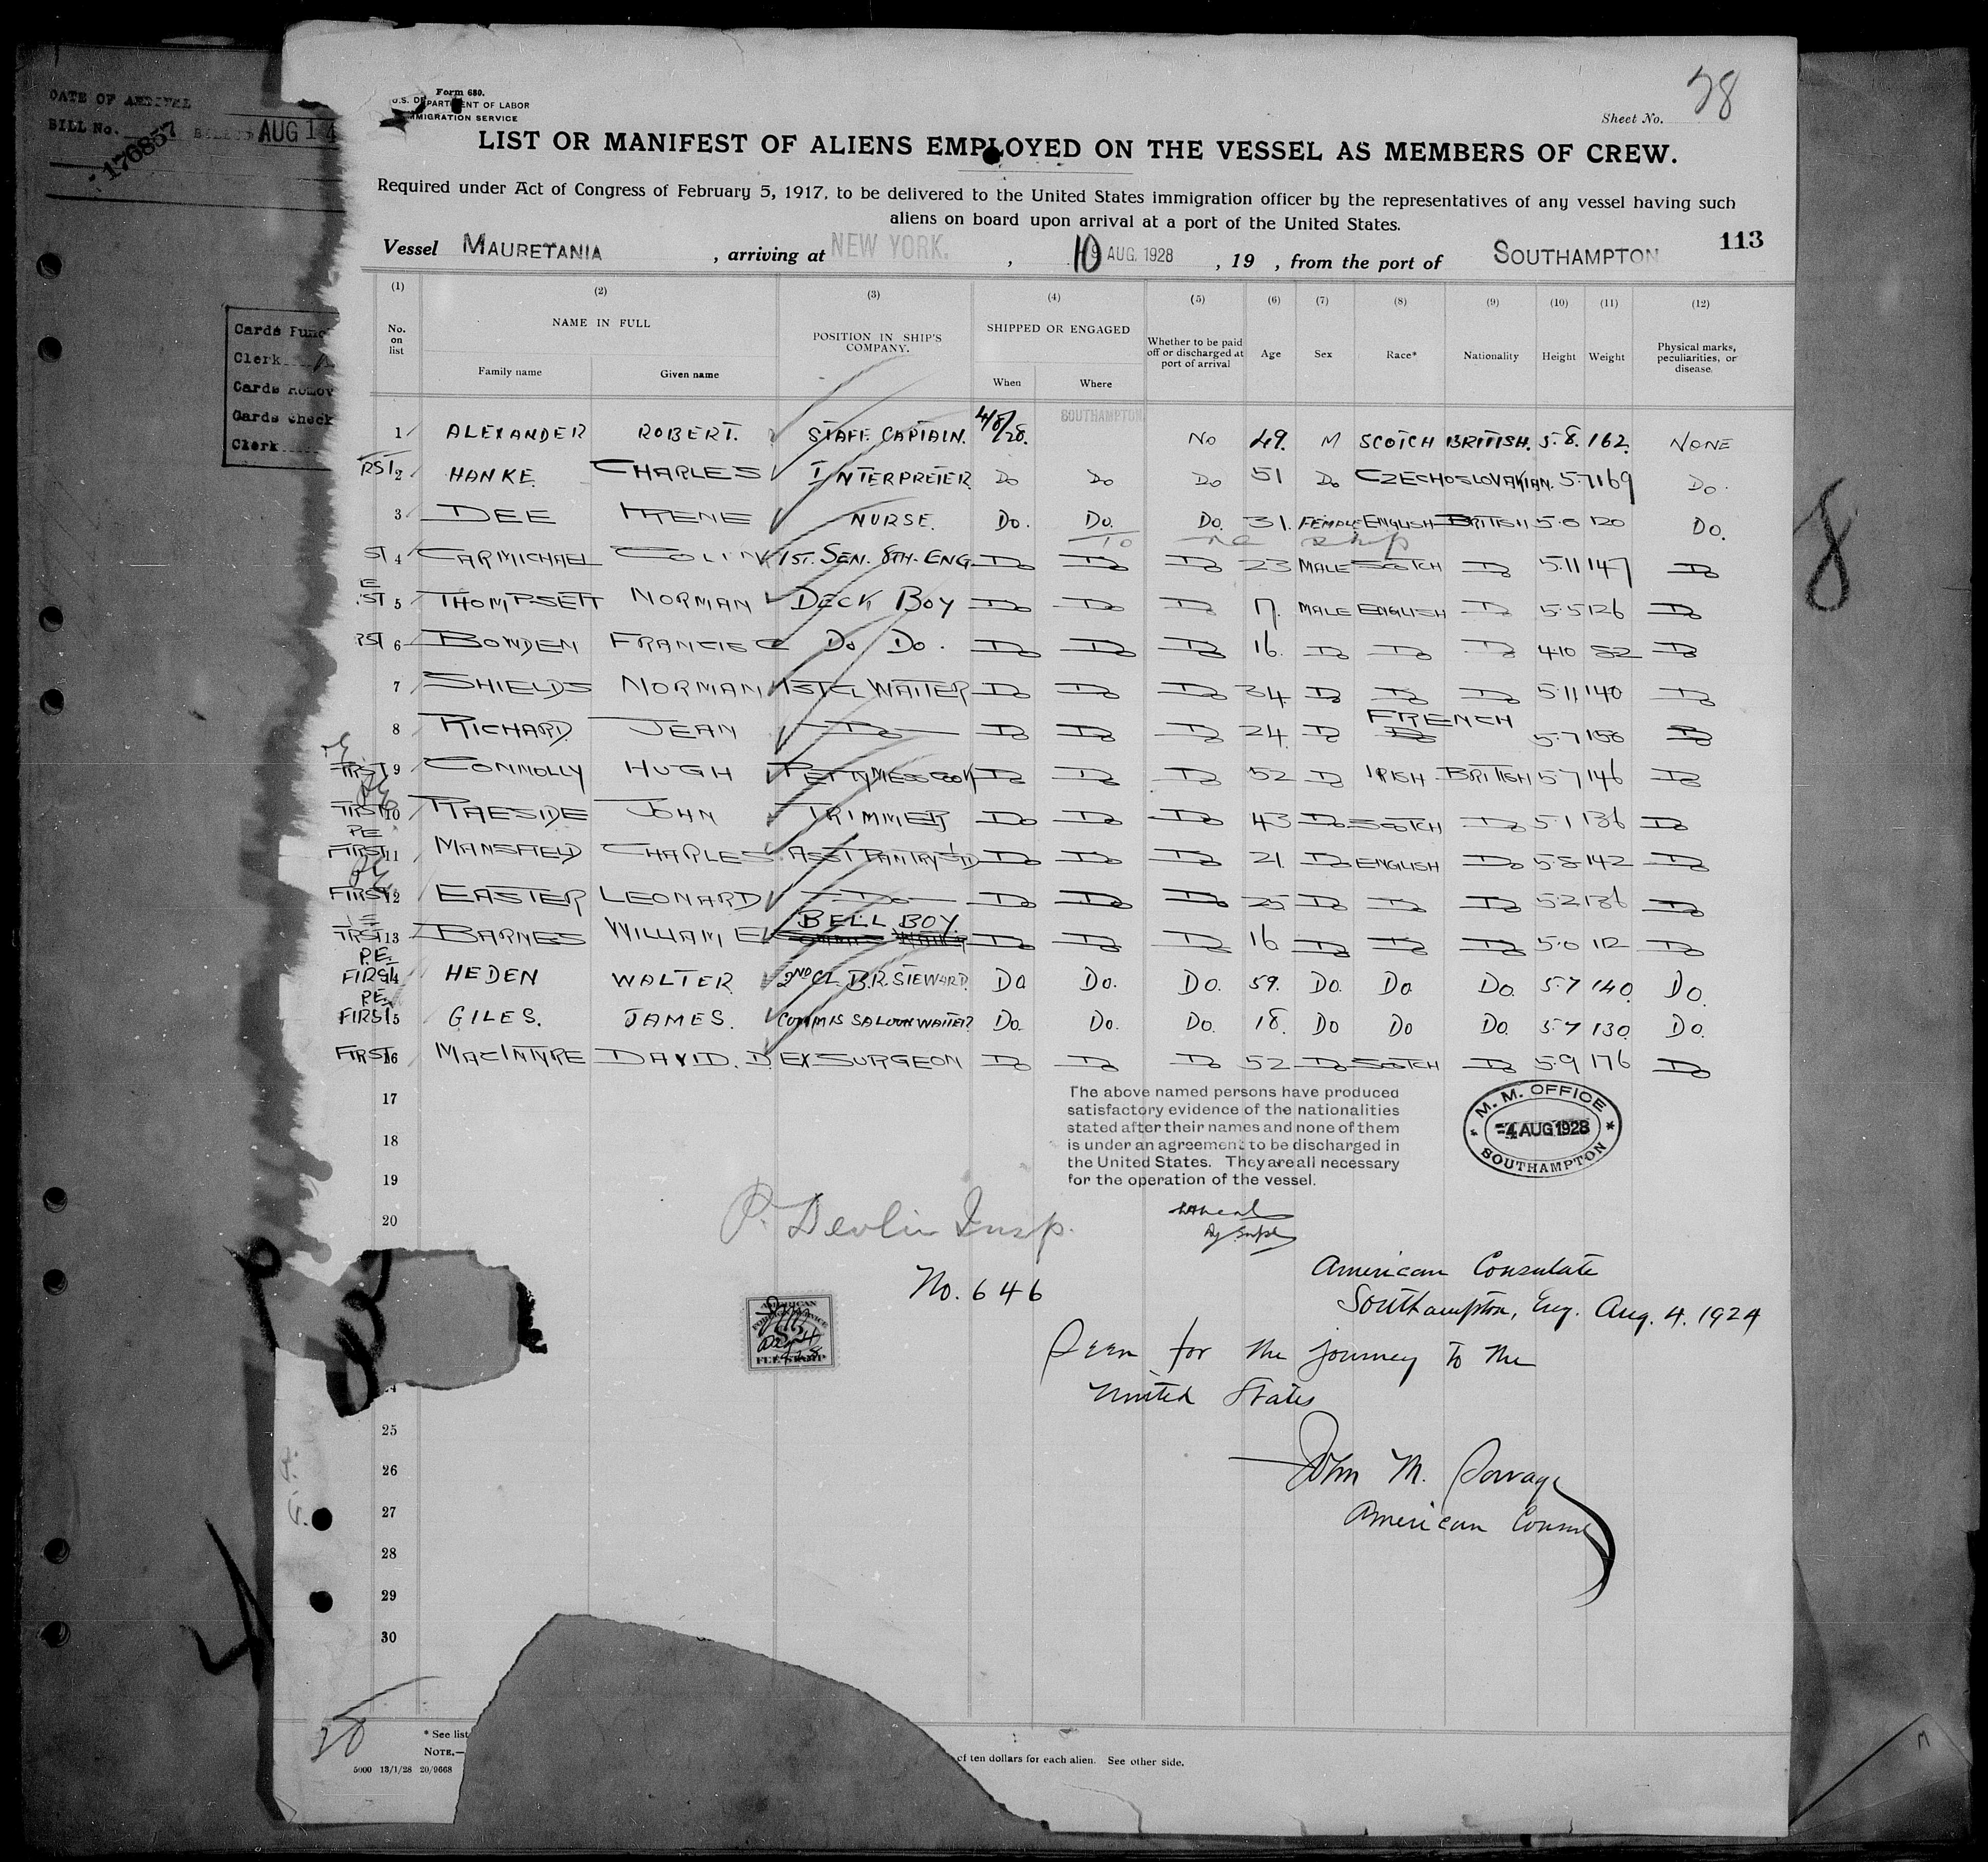 DATE OF ARRIVAL
BILL No. 176857 AUG 14
Cards Punc
Clerk
Cards Remov
Cards Check
Clerk
Form 680.
U.S. DEPARTMENT OF LABOR
IMMIGRATION SERVICE
Sheet No. 28
LIST OR MANIFEST OF ALIENS EMPLOYED ON THE VESSEL AS MEMBERS OF CREW.
Required under Act of Congress of February 5, 1917, to be delivered to the United States immigration officer by the representatives of any vessel having such
aliens on board upon arrival at a port of the United States.
113
Vessel MAURETANIA , arriving at NEW YORK. , 10 AUG. 1928 , 19 , from the port of SOUTHAMPTON
(1) (2) (3) (4) (5) (6) (7) (8) (9) (10) (11) (12)
No. on list NAME IN FULL POSITION IN SHIP'S COMPANY. SHIPPED OR ENGAGED Whether to be paid off or discharged at port of arrival Age Sex Race* Nationality Height Weight Physical marks, peculiarities, or disease.
Family name Given name When Where
1 ALEXANDER ROBERT. STAFF CAPTAIN. 4/8/28. SOUTHAMPTON No 49. M SCOTCH BRITISH. 5.8. 162. NONE
RST 2 HANKE. CHARLES INTERPRETER Do Do Do 51 Do CZECHOSLOVAKIAN. 5.7 169 Do.
3 DEE IRENE NURSE. Do. Do. Do. 31. FEMALE ENGLISH BRITISH 5.0 120 Do.
ST 4 CARMICHAEL COLIN 1ST. SEN. 8TH. ENG Do Do Do 23 MALE SCOTCH Do 5.11 147 Do
ST 5 THOMPSETT NORMAN DECK BOY Do Do Do 17. MALE ENGLISH Do 5.5 126 Do
RST 6 BOWDEN FRANCIS C Do Do. Do Do Do 16. Do Do Do 4.10 82 Do
7 SHIELDS NORMAN 1ST CL WAITER Do Do Do 34. Do Do Do 5.11 140 Do
8 RICHARD. JEAN Do Do Do Do 24. Do FRENCH 5.7 158 Do
FIRST 9 CONNOLLY HUGH PETTY MESS COOK Do Do Do 52 Do IRISH BRITISH 5.7 146 Do
FIRST 10 RAESIDE JOHN TRIMMER Do Do Do 43 Do SCOTCH Do 5.1 136 Do
PE
FIRST 11 MANSFIELD CHARLES ASST PANTRY STD Do Do Do 21. Do ENGLISH Do 5.8 142 Do
FIRST 12 EASTER LEONARD Do Do Do Do 25 Do Do Do 5.2 136 Do
FIRST 13 BARNES WILLIAM E BELL BOY. Do Do Do 16 Do Do Do 5.0 112 Do
P.E.
FIRST 14 HEDEN WALTER. 2ND CL. B.R. STEWARD. Do Do. Do. 59. Do. Do Do. 5.7 140. Do.
P.E.
FIRST 15 GILES. JAMES. COMMIS SALOON WAITER Do. Do. Do. 18. Do Do Do. 5.7 130. Do.
FIRST 16 MACINTYRE DAVID. D. EX SURGEON Do Do Do 52 Do SCOTCH Do 5.9 176 Do
17
18
19
20
25
26
27
28
29
30
The above named persons have produced
satisfactory evidence of the nationalities
stated after their names and none of them
is under an agreement to be discharged in
the United States. They are all necessary
for the operation of the vessel.
M. M. OFFICE
-4 AUG 1928
SOUTHAMPTON
P. Devlin Insp.
No. 646
AMERICAN
FOREIGN SERVICE
$2
FEE STAMP
American Consulate
Southampton, Eng. Aug. 4. 1924
Seen for the journey to the
United States
John M. Savage
American Consul
8
28
* See list
NOTE.— of ten dollars for each alien. See other side.
5000 13/1/28 20/9668